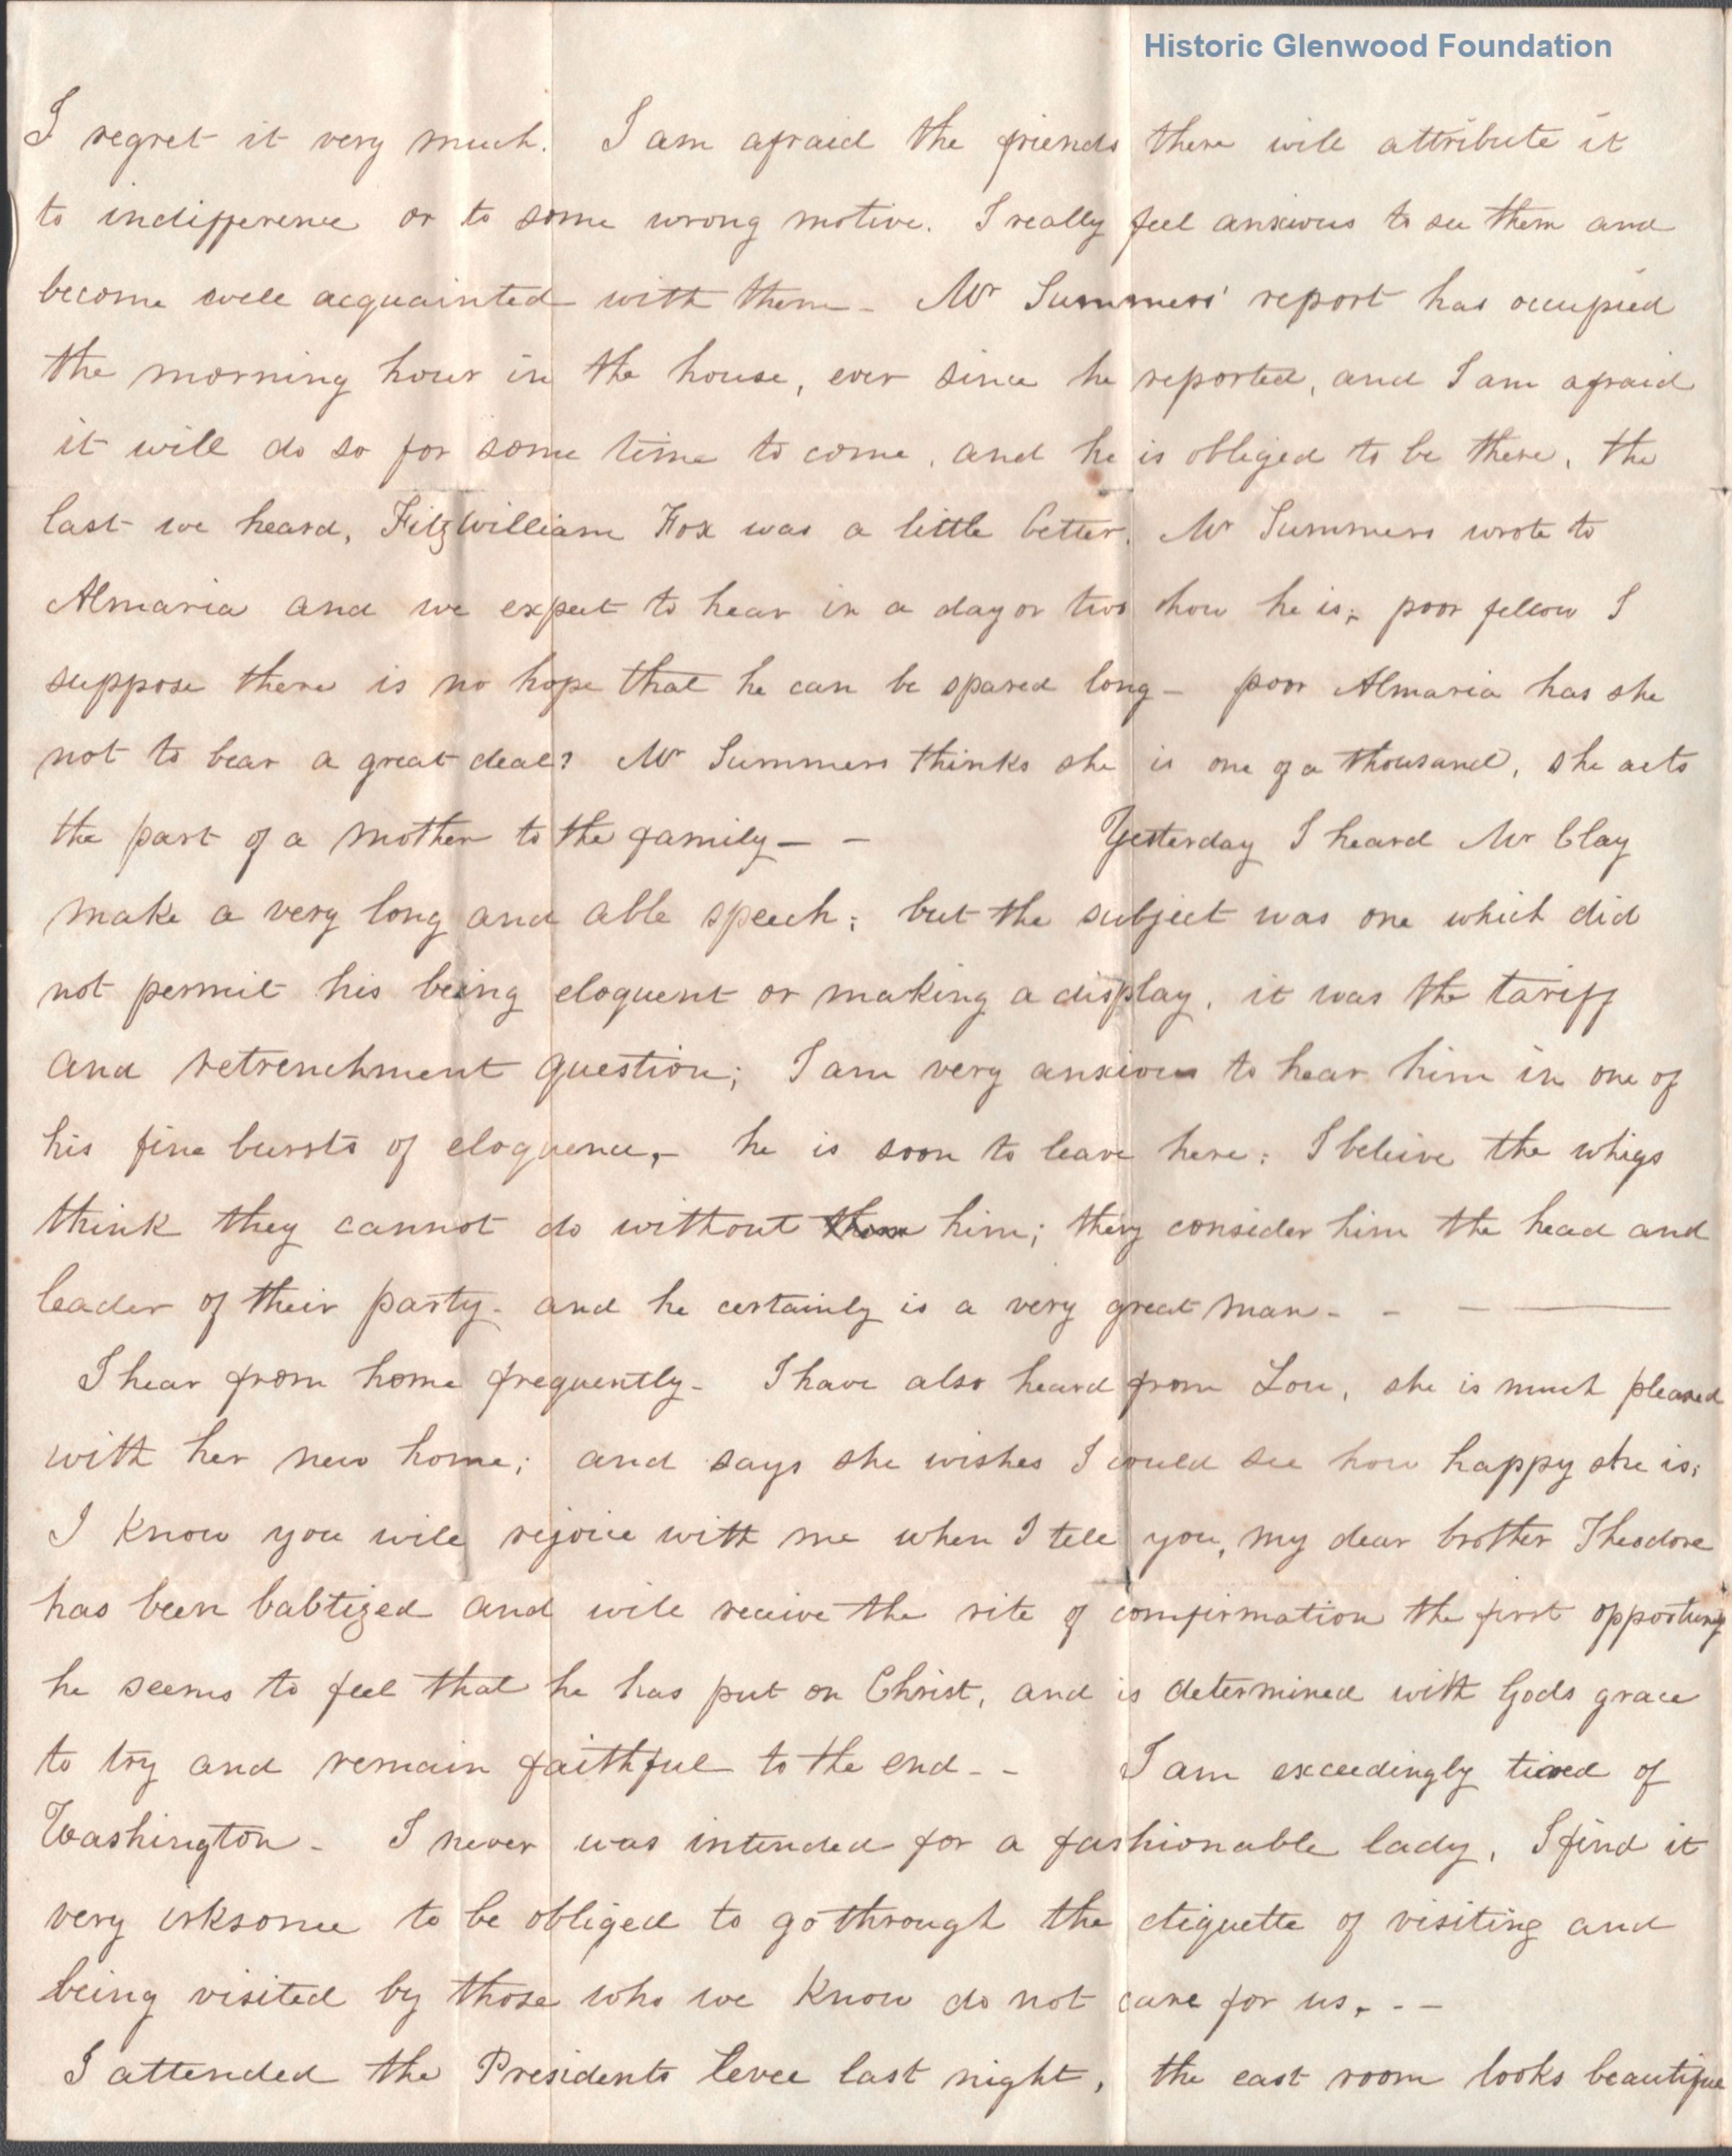 Historic Glenwood Foundation
I regret it very much. I am afraid the friends there will attribute it
to indifference or to some wrong motive. I really feel anxious to see them and
become well acquainted with them - Mr Summers' report has occupied
the morning hour in the house, ever since he reported, and I am afraid
it will do so for some time to come, and he is obliged to be there, the
last we heard, FitzWilliam Fox was a little better. Mr Summers wrote to
Almaria and we expect to hear in a day or two how he is; poor fellow I
suppose there is no hope that he can be spared long - poor Almaria has she
not to bear a great deal? Mr Summers thinks she is one of a thousand, she acts
the part of a mother to the family - - Yesterday I heard Mr Clay
make a very long and able speech; but the subject was one which did
not permit his being eloquent or making a display, it was the tariff
and retrenchment question; I am very anxious to hear him in one of
his fine bursts of eloquence, - he is soon to leave here; I beleive the whigs
think they cannot do without him; they consider him the head and
leader of their party - and he certainly is a very great man - - -
I hear from home frequently - I have also heard from Lou, she is much pleased
with her new home; and says she wishes I could see how happy she is;
I know you will rejoice with me when I tell you, my dear brother Theodore
has been babtized and will receive the rite of comfirmation the first opportuny
he seems to feel that he has put on Christ, and is determined with Gods grace
to try and remain faithful to the end - - I am exceedingly tired of
Washington - I never was intended for a fashionable lady, I find it
very irksome to be obliged to go through the etiquette of visiting and
being visited by those who we know do not care for us. - -
I attended the Presidents levee last night, the east room looks beautiful